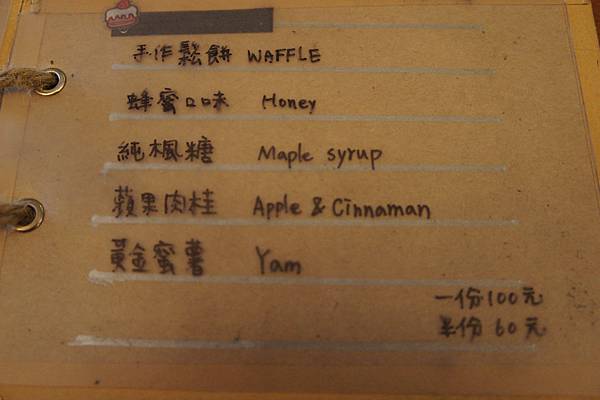 手作鬆餅 WAFFLE
蜂蜜口味 Honey
純楓糖 Maple syrup
蘋果肉桂 Apple & Cinnaman
黃金蜜薯 Yam
一份100元
半份 60元